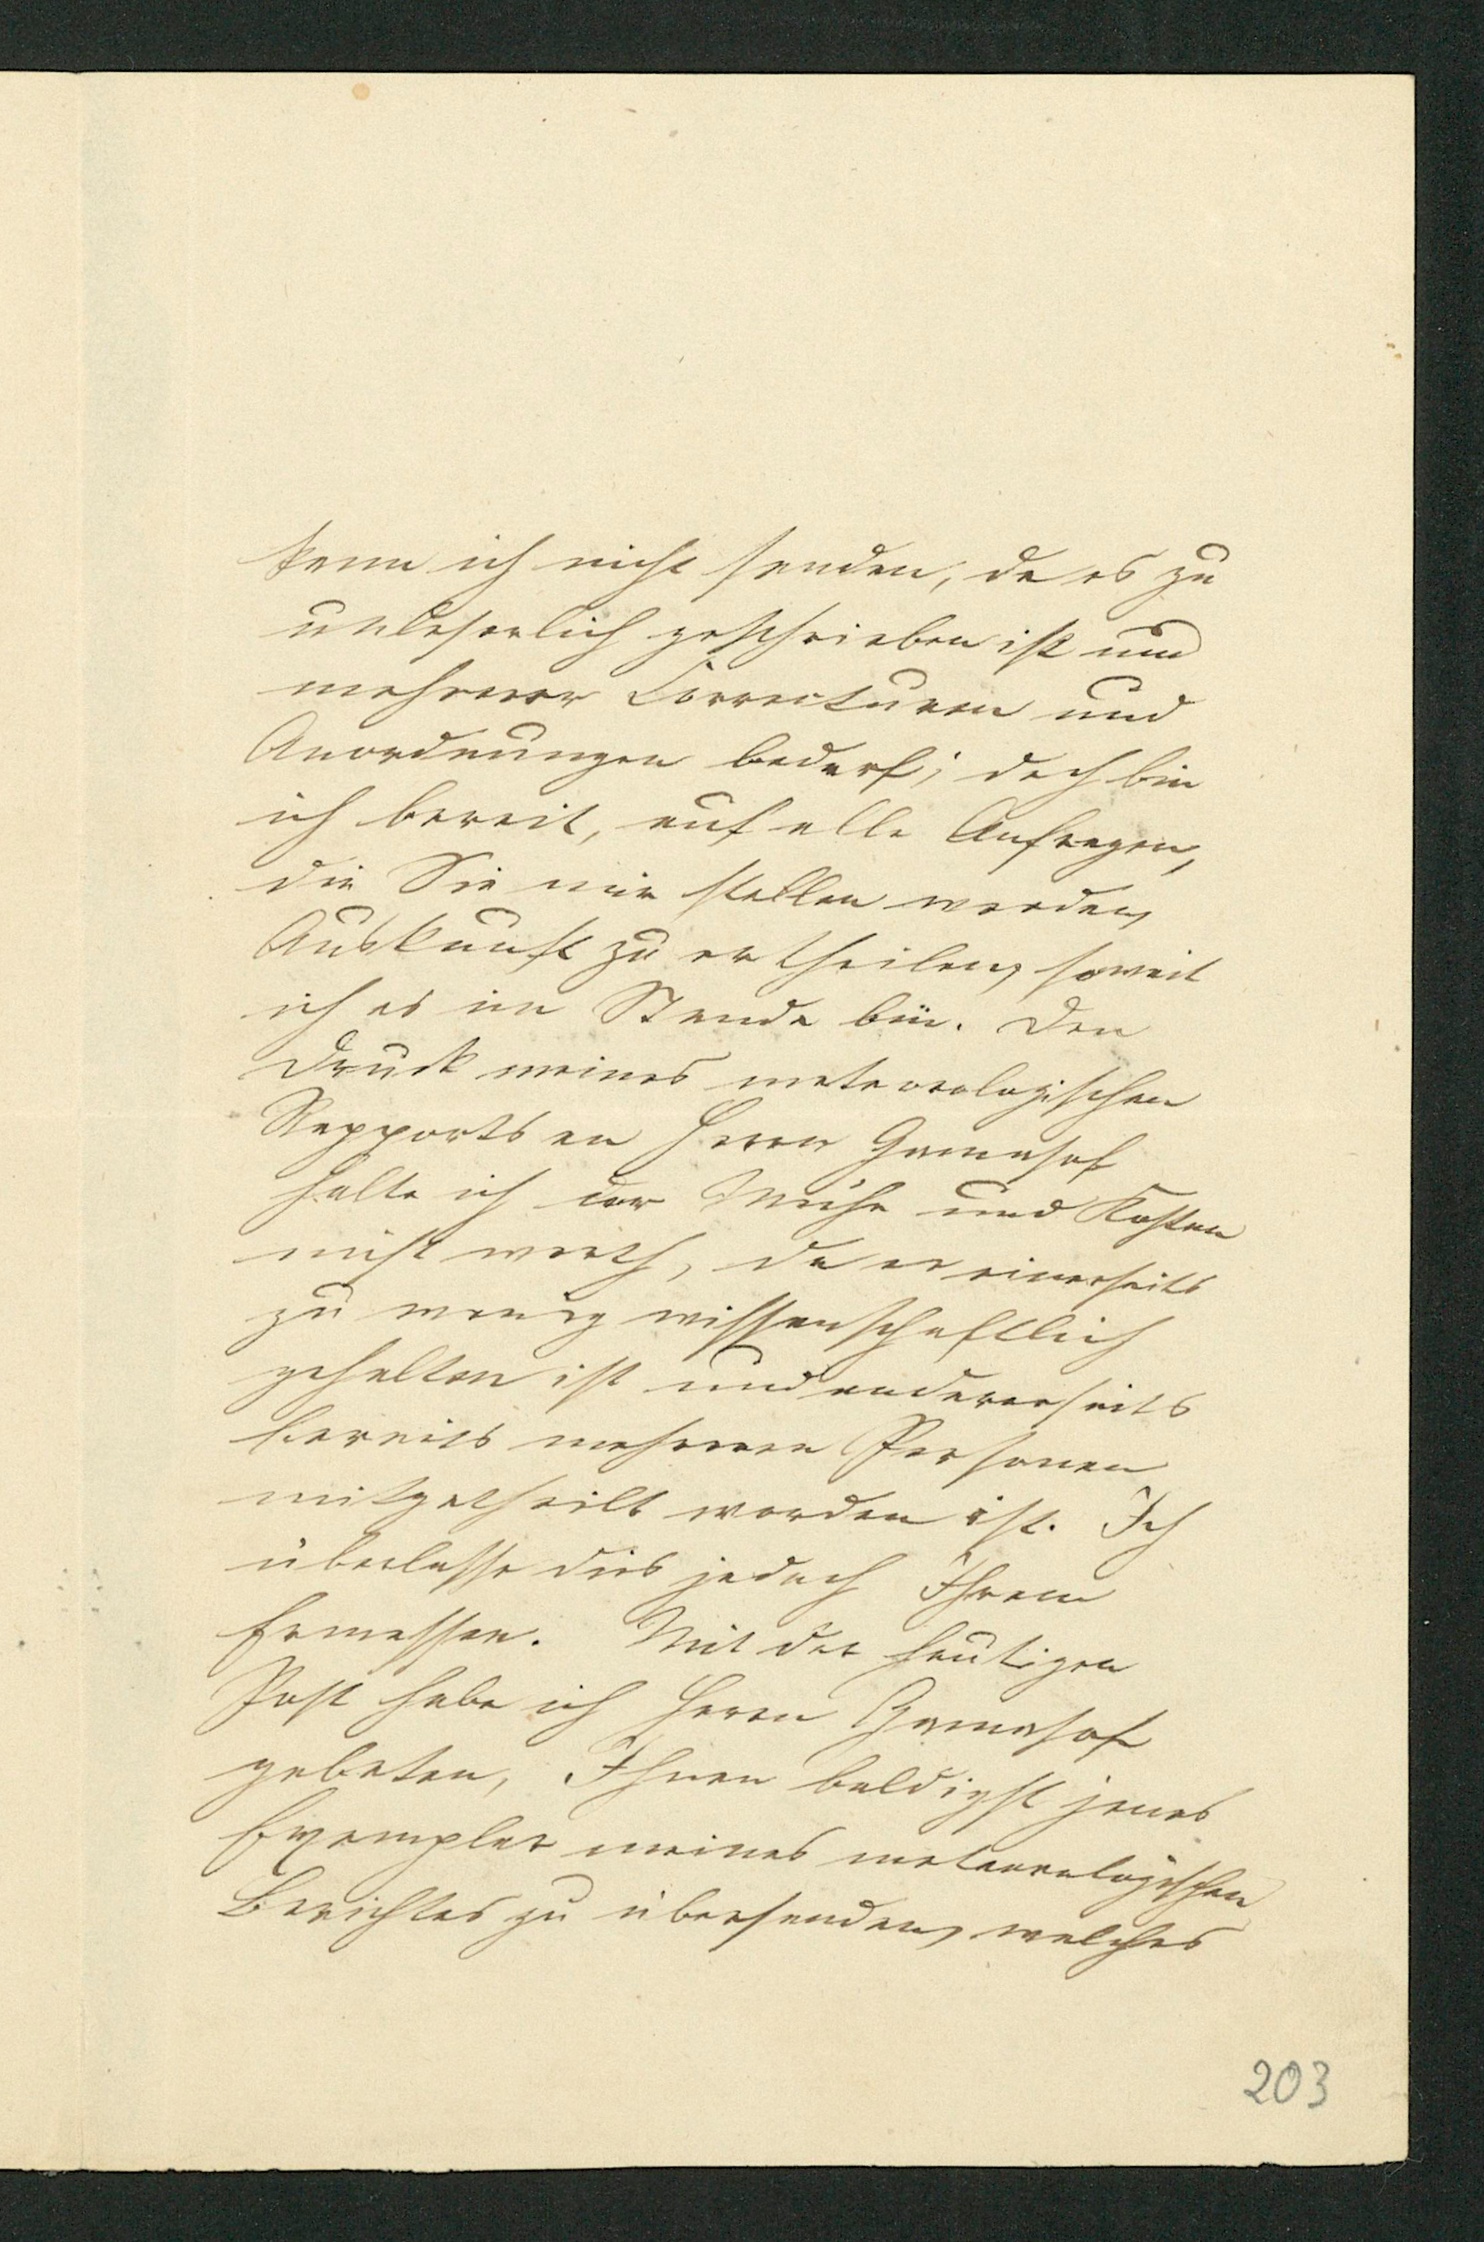 kann ich nicht senden, da es zu
unleserlich geschrieben ist und
mehrerer Correcturen und
Anordnungen bedarf; doch bin
ich bereit, auf alle Anfragen,
die Sie mir stellen werden,
Auskunft zu ertheilen, soweit
ich es im Stande bin. Den
Druck meines meteorologischen
Rapports an Herrn Gamasof
halte ich der Mühe und Kosten
nicht werth, da er einerseits
zu wenig wissenschaftlich
gehalten ist und andererseits
bereits mehreren Personen
mitgetheilt worden ist. Ich
überlasse dies jedoch Ihrem
Ermessen. Mit der heutigen
Post habe ich Herrn Gamasof
gebeten, Ihnen baldigst jenes
Exemplar meines meteorologischen
Berichtes zu übersenden, welches
203